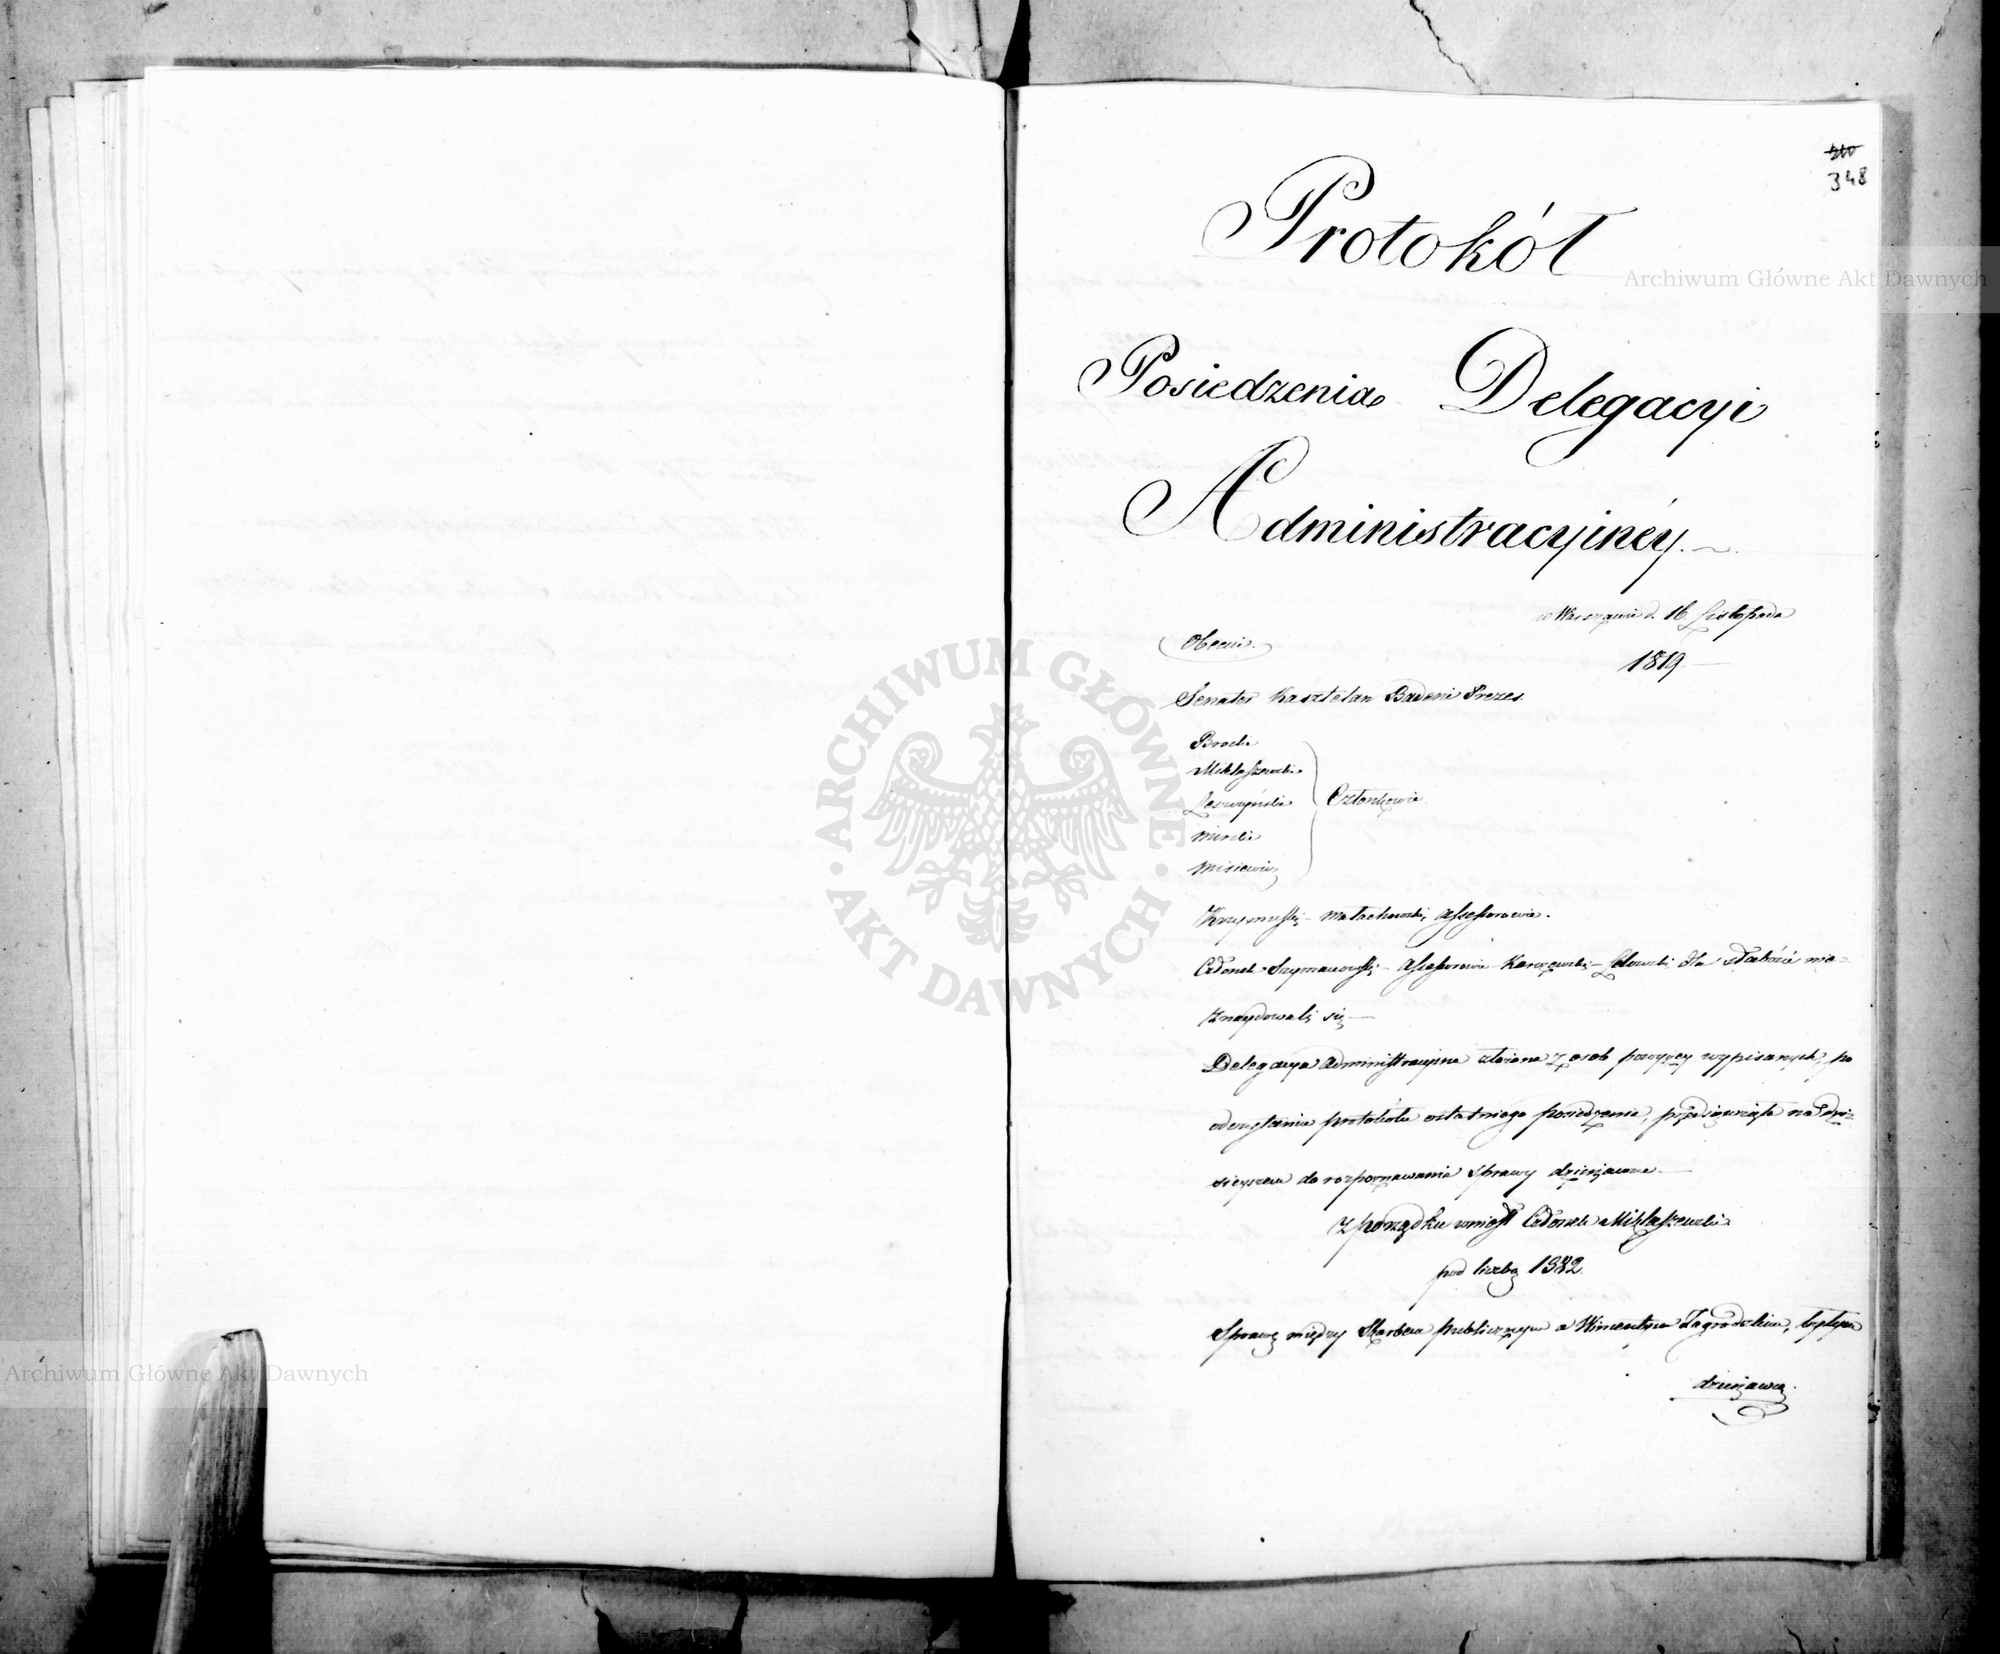 348
Protokół
Posiedzenia Delegacyi
Administracyinéy.
w Warszawie d. 16. Listopada
1819
Obecni.
Senator Kasztelan Badeni Prezes.
Brocki
Mikłaszewski
Leszczyński
Członkowie
Mirski
Misiewicz
Krzymuski Małachowski, Assessorowie.
Członek Szymanowski Assessorowie Karczewski dla słabości nie
znaydowali się
Delegacya Administracyina złożona z osob powyżey wypisanych, po
odczytaniu protokołu ostatniego posiedzenia, przedsięwzięła na dzi-
sieyszem do rozpoznawania sprawy dzierżawne
Z porządku wniosł Członek Mikłaszewski
pod liczbą 1382
Sprawę między Skarbem publicznym a Wincentym Zagrodzkim, byłym
dzierżawcą.
Archiwum Główne Akt Dawnych
ARCHIWUM GŁÓWNE AKT DAWNYCH
Archiwum Główne Akt Dawnych